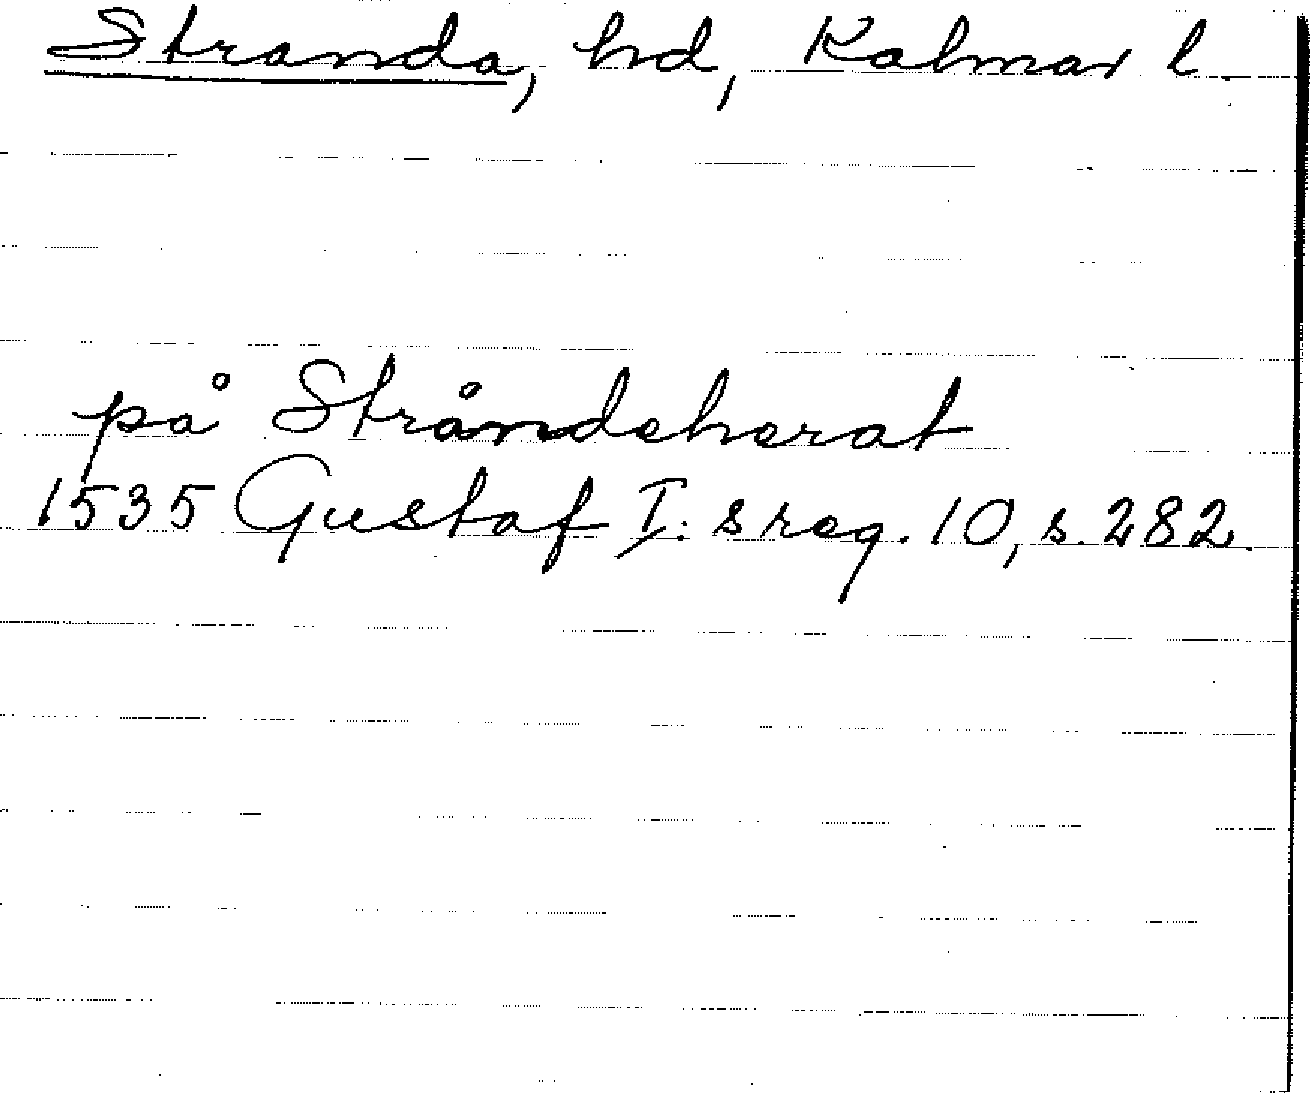 Stranda, hd, Kalmar l.
på Stråndeherat
1535 Gustaf I:s reg. 10, s. 282.